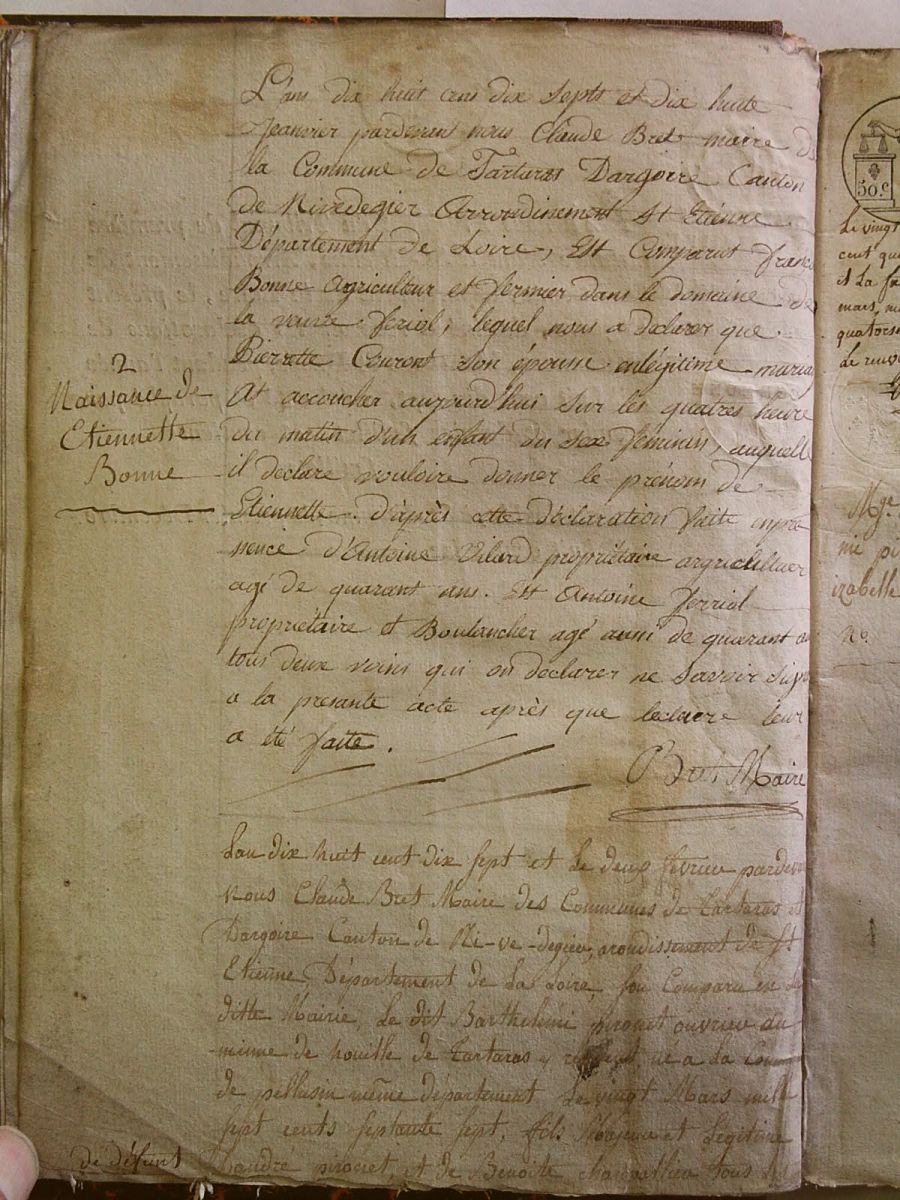 L'ans dix huit cens dix septs et dix huite
Jeanvier pardevant nous Claude Bret maire de
la Commune de Tartaras Dargoire Canton
de Rivedegier Arrondinement St Etienne
Département de Loire, Est Comparut franc
Bonne Agriculteur et fermier dans le domaine de
la veuve feriol, lequel nous a declarer que
Pierrette Courent son épouse enlégitime mariag
At accoucher aujourd'hui sur les quatres heure
du matin d'un enfant du sex feminin, auquelle
il declare vouloire donner le prénom de
Etiennette. d'après cette déclaration faite enpré
sence d'Antoine propriétaire argriculttuer
agé de quarant ans. Et Antoine ferriol
propriétaire et Boulancher agé aussi de quarant an
tous deux voins qui on declarer ne savoir signe
a la presante acte après que lecture leur
a été faite.
Bret, Maire
2
Naissance de
Etiennette
Bonne
Lan dix huit cent dix sept et le deux fevrier pardevan
nous Claude Bret Maire des Communes de Tartaras et
Dargoire Canton de Ri-ve-degier, arondissement de St
Etienne, Département de La Loire, fou Comparu en La
ditte Mairie, Le dit Barthelemi pironet ouvrier au
minne de houille de Tartaras y né a La Com
de pellusin même département Le vingt Mars mille
sept cents septante sept, fils Majeur et Légitime
de défunt
andré pironet, et de Benoite tous
50.c
Le vingt
cent qu
et La fa
mars, m
quatorse
Mge
mi pi
izabelle
no